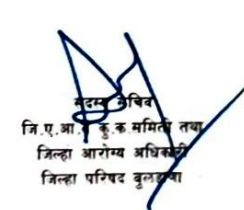 सदस्य सचिव
जि.ए.आ. कु.क.समिती तथा
जिल्हा आरोग्य अधिकारी
जिल्हा परिषद बुलढाणा